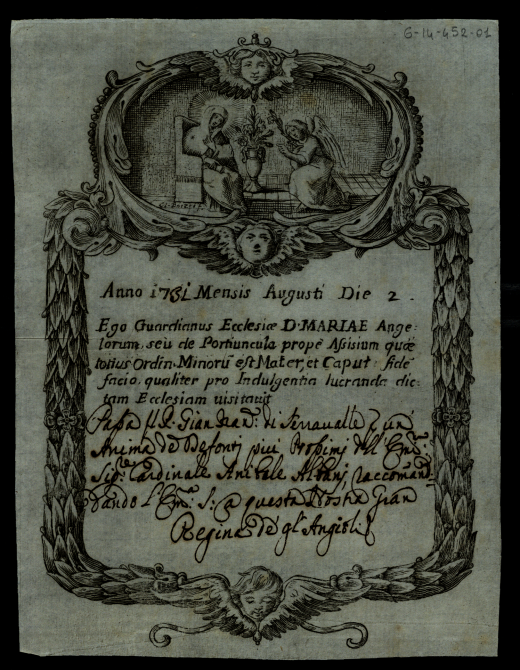 6-14-452-01
Anno 1751 Mensis Augusti Die 2.
Ego Guardianus Ecclesiæ D. MARIAE Ange=
lorum, seù de Portiuncula propè Assisium quæ
totius Ordin. Minorū est Mater, et Caput: fidē
facio, qualiter pro Indulgentia lucranda dic=
tam Ecclesiam uisitauit
Gian di Serraualle un
Anima de Defonti più Prossimi dell' Em:
Sig: Cardinale Anibale Albani, raccoman=
dando l'Em: S: a questa Nostra Gran
Regina de gl' Angioli